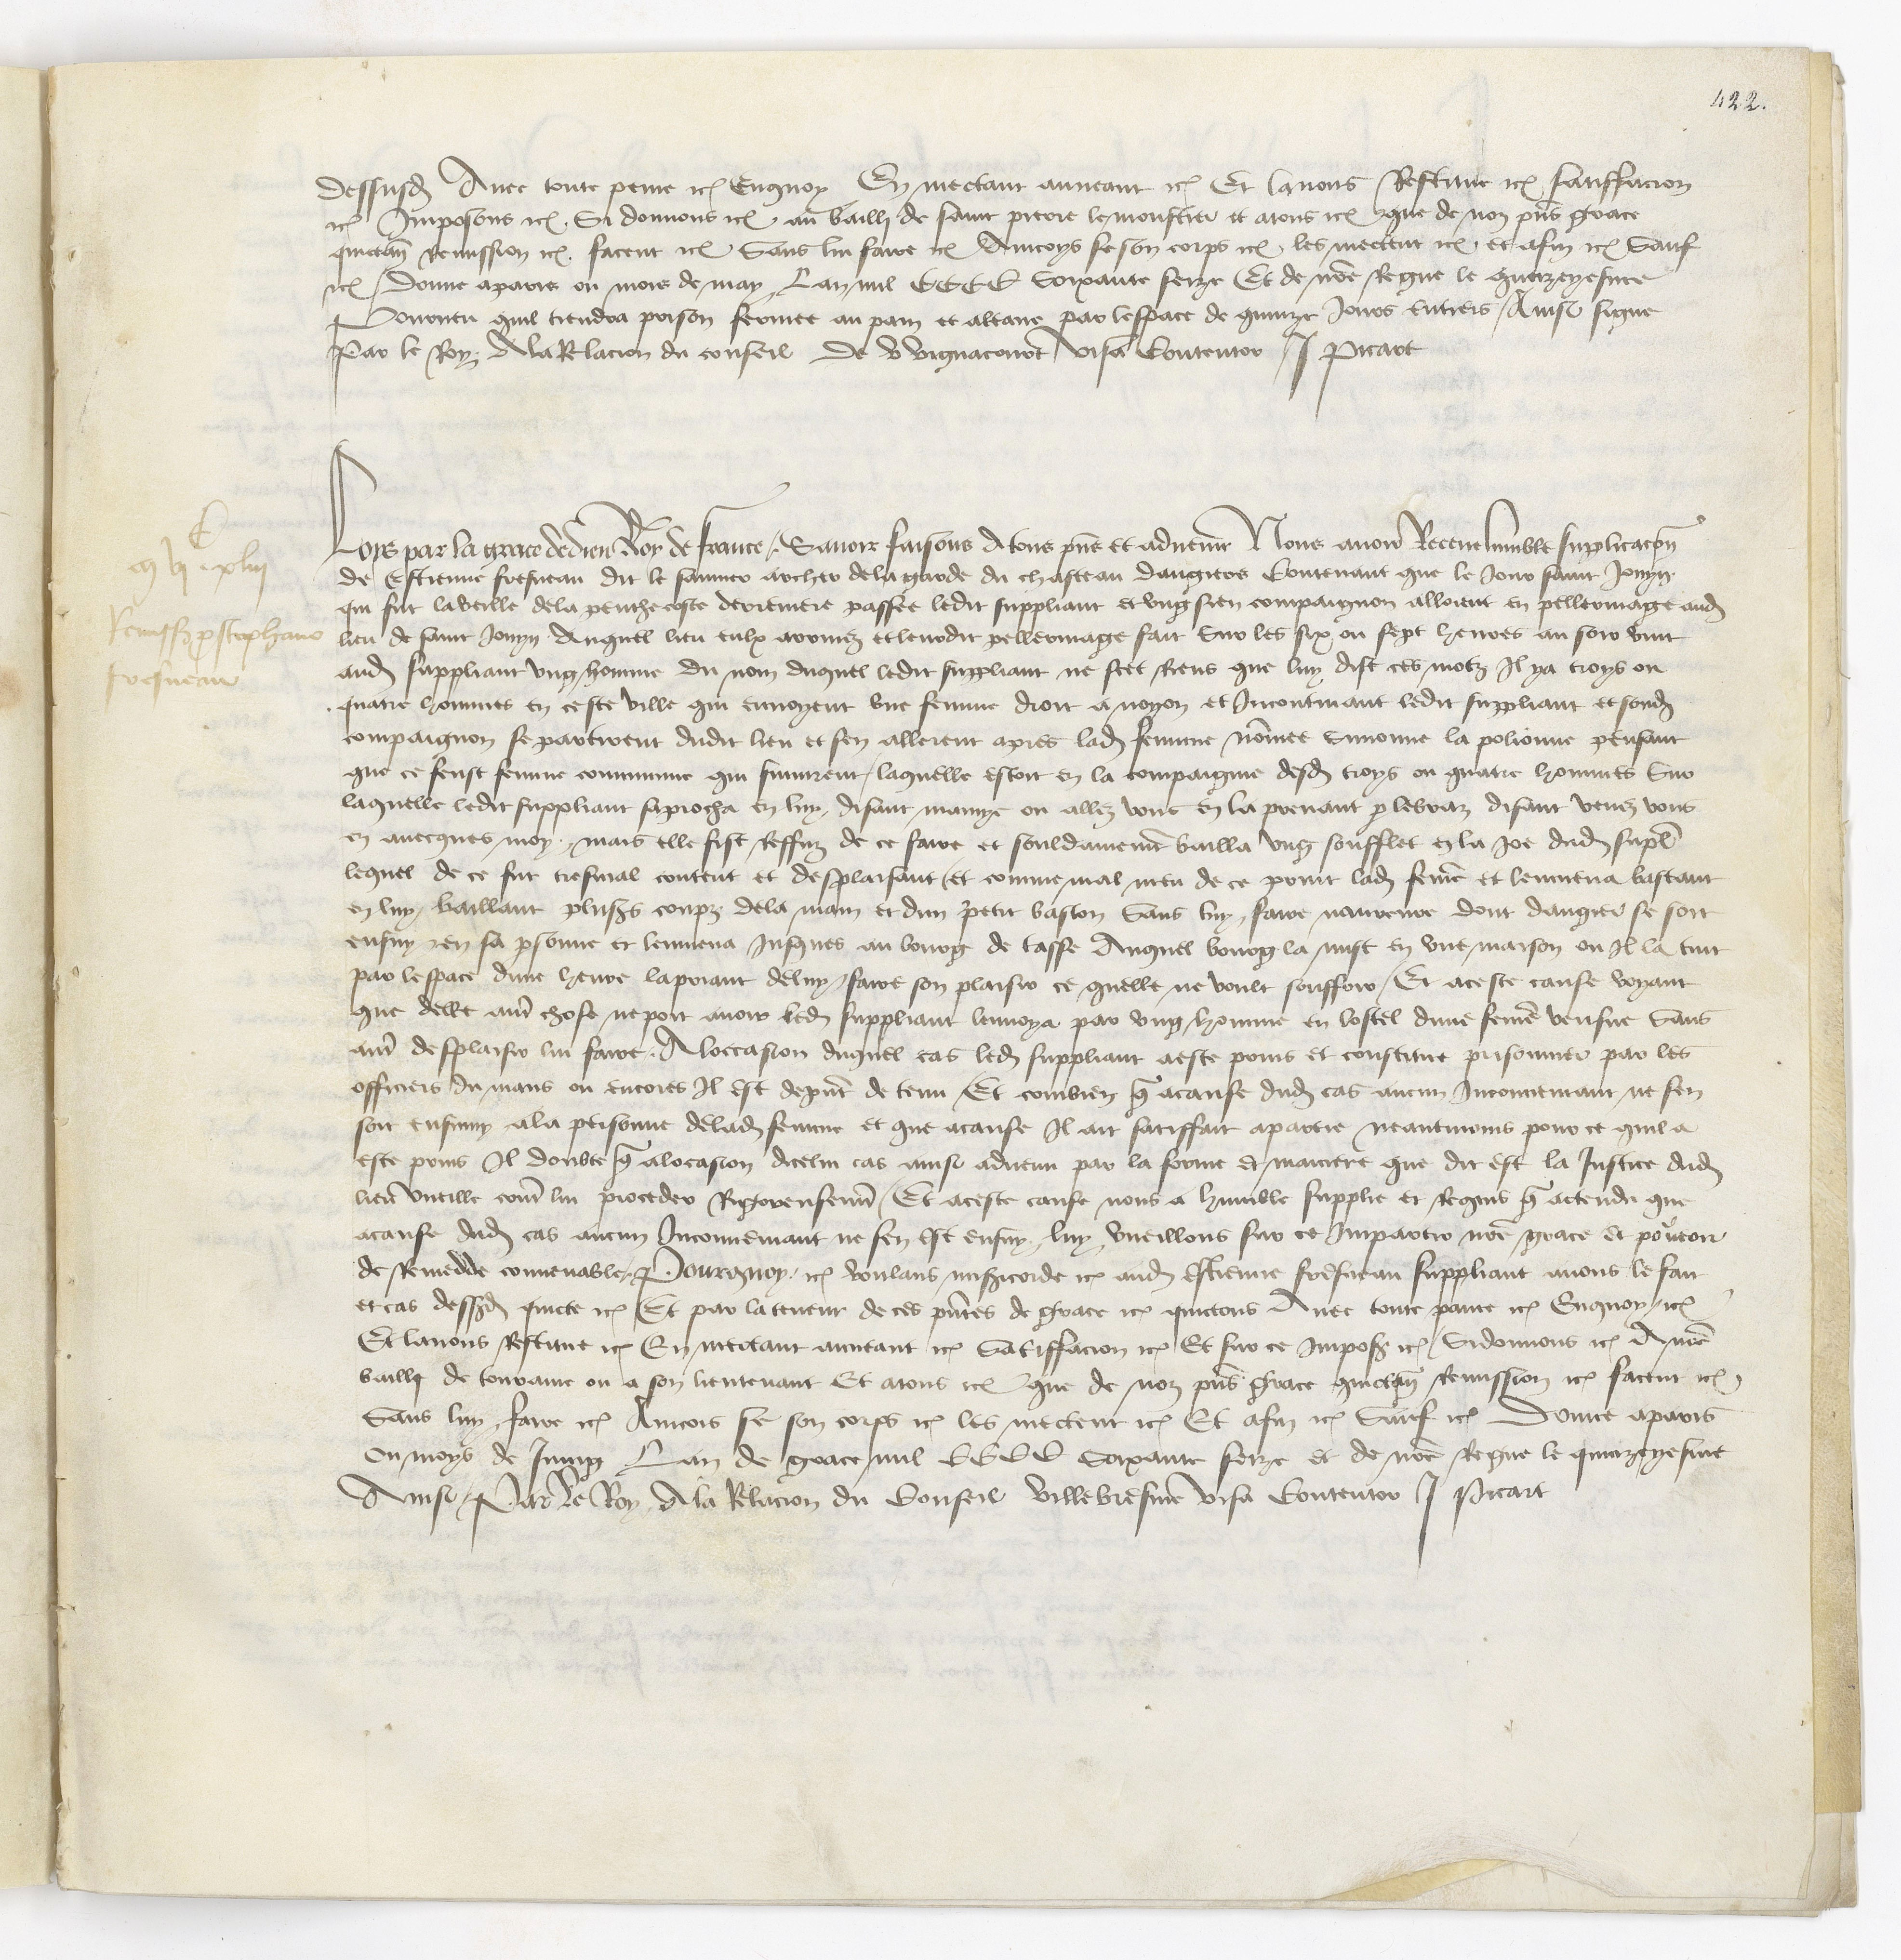 422.
dessusd Avec toute peine etc Enquoy En mectant au neant etc Et lavons Restitue etc satisffacion
etc Imposons etc. Si donnons etc au bailli de saint pierre le moustier et atous etc que de noz pns grace
quictan Remission etc. facent etc Sans lui faire etc Aincoys se son corps etc. les mectent etc. et afin etc Sauf
etc Donne aparis ou mois de may Lan mil CCCC Soixante seize Et de nre Regne le quinzeyesme
Pourveu quil tiendra prison fermee au pain et aleaue par lespace de quinze Jours entiers Ainsi signe
Par le Roy. Ala Relacion du conseil De Vignacourt Visa Contentor J Picart
Loys par la grace de dieu Roy de France. Savoir faisons Atous pns et advenir Nous avoir Receue lumble supplicacion
de Estienne fresneau dit le saunier archer dela garde du chasteau dangiers Contenant que le Jour saint Jouyn
qui fut laveille dela penthecoste derreniere passee ledit suppliant et ung sien compaignon alloient en pellerinage aud
lieu de saint Jouyn Auquel lieu eulx arrivez et leurdit pellerinage fait Sur les six ou sept heures au soir vint
aud suppliant ung homme du nom duquel ledit suppliant ne scet Riens que luy dist ces motz Il ya troys ou
quatre hommes en ceste ville qui envoyent une femme droit a noyon et Incontinant ledit suppliant et sond
compaignon se partirent dudit lieu et sen allerent apres lad femme nommee Simonne la polionne pensant
que ce feust femme commune qui suivirent laquelle estoit en la compaignie desd troys ou quatre hommes Sur
laquelle ledit suppliant saprocha en luy disant mamye ou allez vous en la prenant p lebraz disant venez vous
en avecques moy. mais elle fist Reffuz de ce faire et souldainement bailla ung soufflet en la joe dud supl
lequel de ce fut tresmal content et desplaisant et comme mal meu de ce print lad feme et lenmena bastant
en luy baillant pluss coups dela main et dun petit baston Sans luy faire navreure dont dangier se soit
ensuy en sa psonne et lenmena Jusques au bourg de tasse Auquel bourg la mist en une maison ou Il la tint
par lespace dune heure lapriant deluy faire son plaisir ce quelle ne voult souffrir Et aceste cause voyant
que delle autre chose ne poit avoir led suppliant lenvoya par ung homme en lostel dune feme veufve Sans
autre desplaisir lui faire. Aloccasion duquel cas led suppliant aeste prins et constitue prisonnier par les
officiers du mans ou encores Il est depnt detenu Et combien q acause dud cas aucun Inconvenient ne sen
soit ensuivy ala personne delad femme et que acause Il ait satisffait apartie neantmoins pour ce quil a
este prins Il doubte q alocasion dicelui cas ainsi advenu par la forme et maniere que dit est la Justice dud
lieu vueille contre lui proceder Rigoreusement Et aceste cause nous a humble supplie et Requis q actendu que
acause dud cas aucun Inconvenient ne sen est ensuy luy vueillons sur ce Impartir nre grace et pourveoir
de Remedde convenable. Pourquoy etc voulans misericorde etc aud Estienne fresneau suppliant avons le fait
et cas dessusd quicte etc Et par la teneur de ces pntes de grace etc quictons Avec toute paine etc Enquoy etc
Et lavons Restitue etc En mectant au neant etc Satisffacion etc Et sur ce Imposons etc Sidonnons etc A nre
bailli de touraine ou a son lieutenant Et atous etc que de noz pns grace quictan Remission etc facent etc
Sans luy faire etc Aincois se son corps etc les mectent etc Et afin etc Sauf etc Donne aparis
Ou moys de Juing Lan de grace mil CCCC Soixante seize et de nre Regne le quinzeyesme
Ainsi Par le Roy Ala Relacion du Conseil Villebresme Visa Contentor J Picart
Remiss p stephano
fresneau